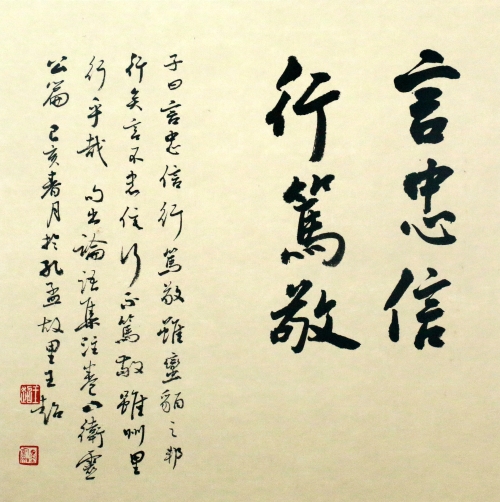 言忠信
行篤敬
子曰言忠信行篤敬雖蠻貊之邦
行矣言不忠信行不篤敬雖州里
行乎哉 句出論語集注卷八衛靈
公篇 己亥春月於孔孟故里王